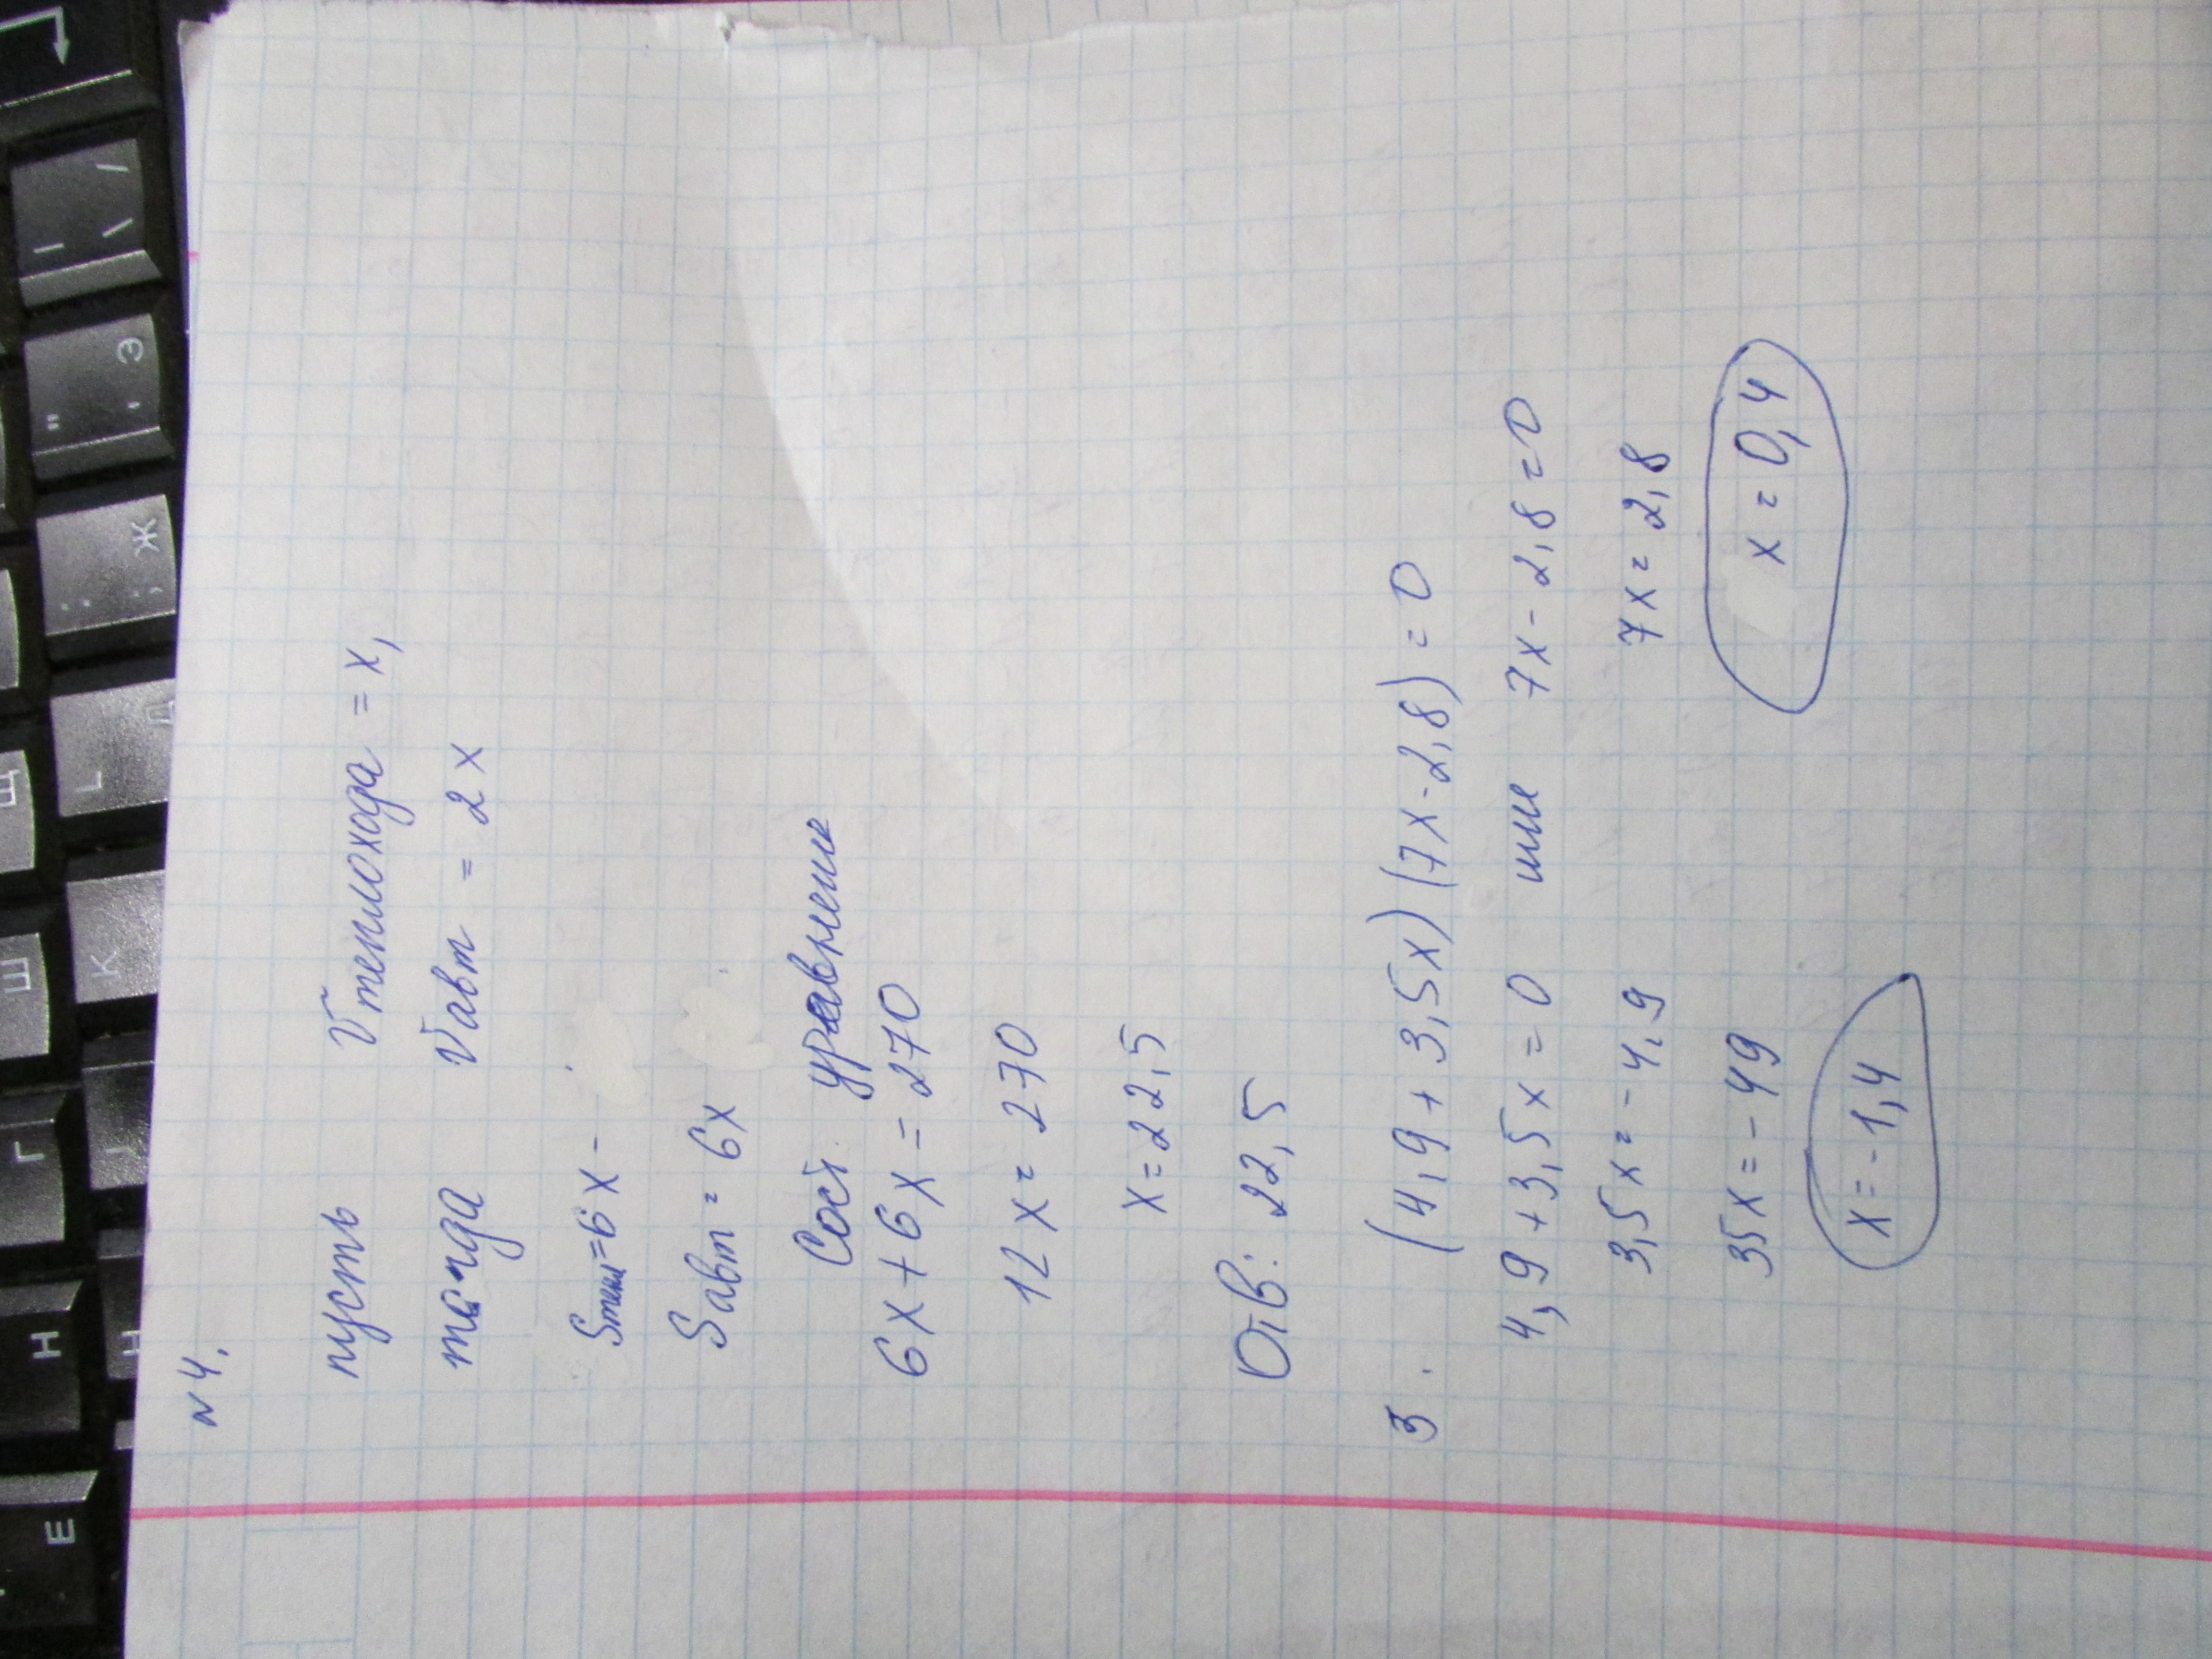 N4.
пусть Vтеплохода = x,
тогда Vавт = 2x
Sтепл=6x -
Sавт = 6x
Сост. уравнение
6x + 6x = 270
12x = 270
x = 22,5
Отв: 22,5
3. (4,9 + 3,5x)(7x - 2,8) = 0
4,9 + 3,5x = 0 или 7x - 2,8 = 0
3,5x = -4,9 7x = 2,8
35x = -49 x = 0,4
x = -1,4
Е Н Г Ш Щ
К L Д
; : Ж
" ' Э
| \ /